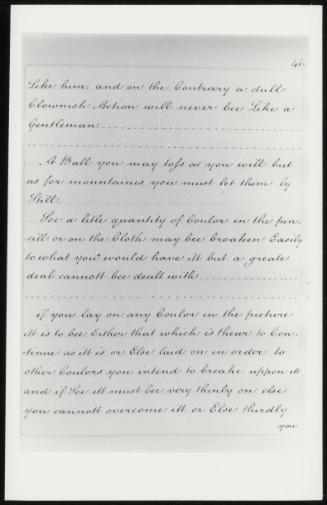 46.
Like him. and on the Contrary a dull
Clownish Action will never bee Like a
Gentleman
A Ball you may tofs as you will but
as for mountaines you must let them ly
Still.
Soe a litle quantity of Coulor in the pen-
-cill or on the Cloth may bee broaken Easily
to what you would have it but a greate
deal cannott bee dealt with
if you lay on any Coulor in the picture
it is to bee Either that which is thear to Con-
-tinue as it is or Else laid on in order to
other Coulors you intend to breake uppon it
and if Soe it must bee very thinly on else
you cannott overcome it or Else thirdly
you